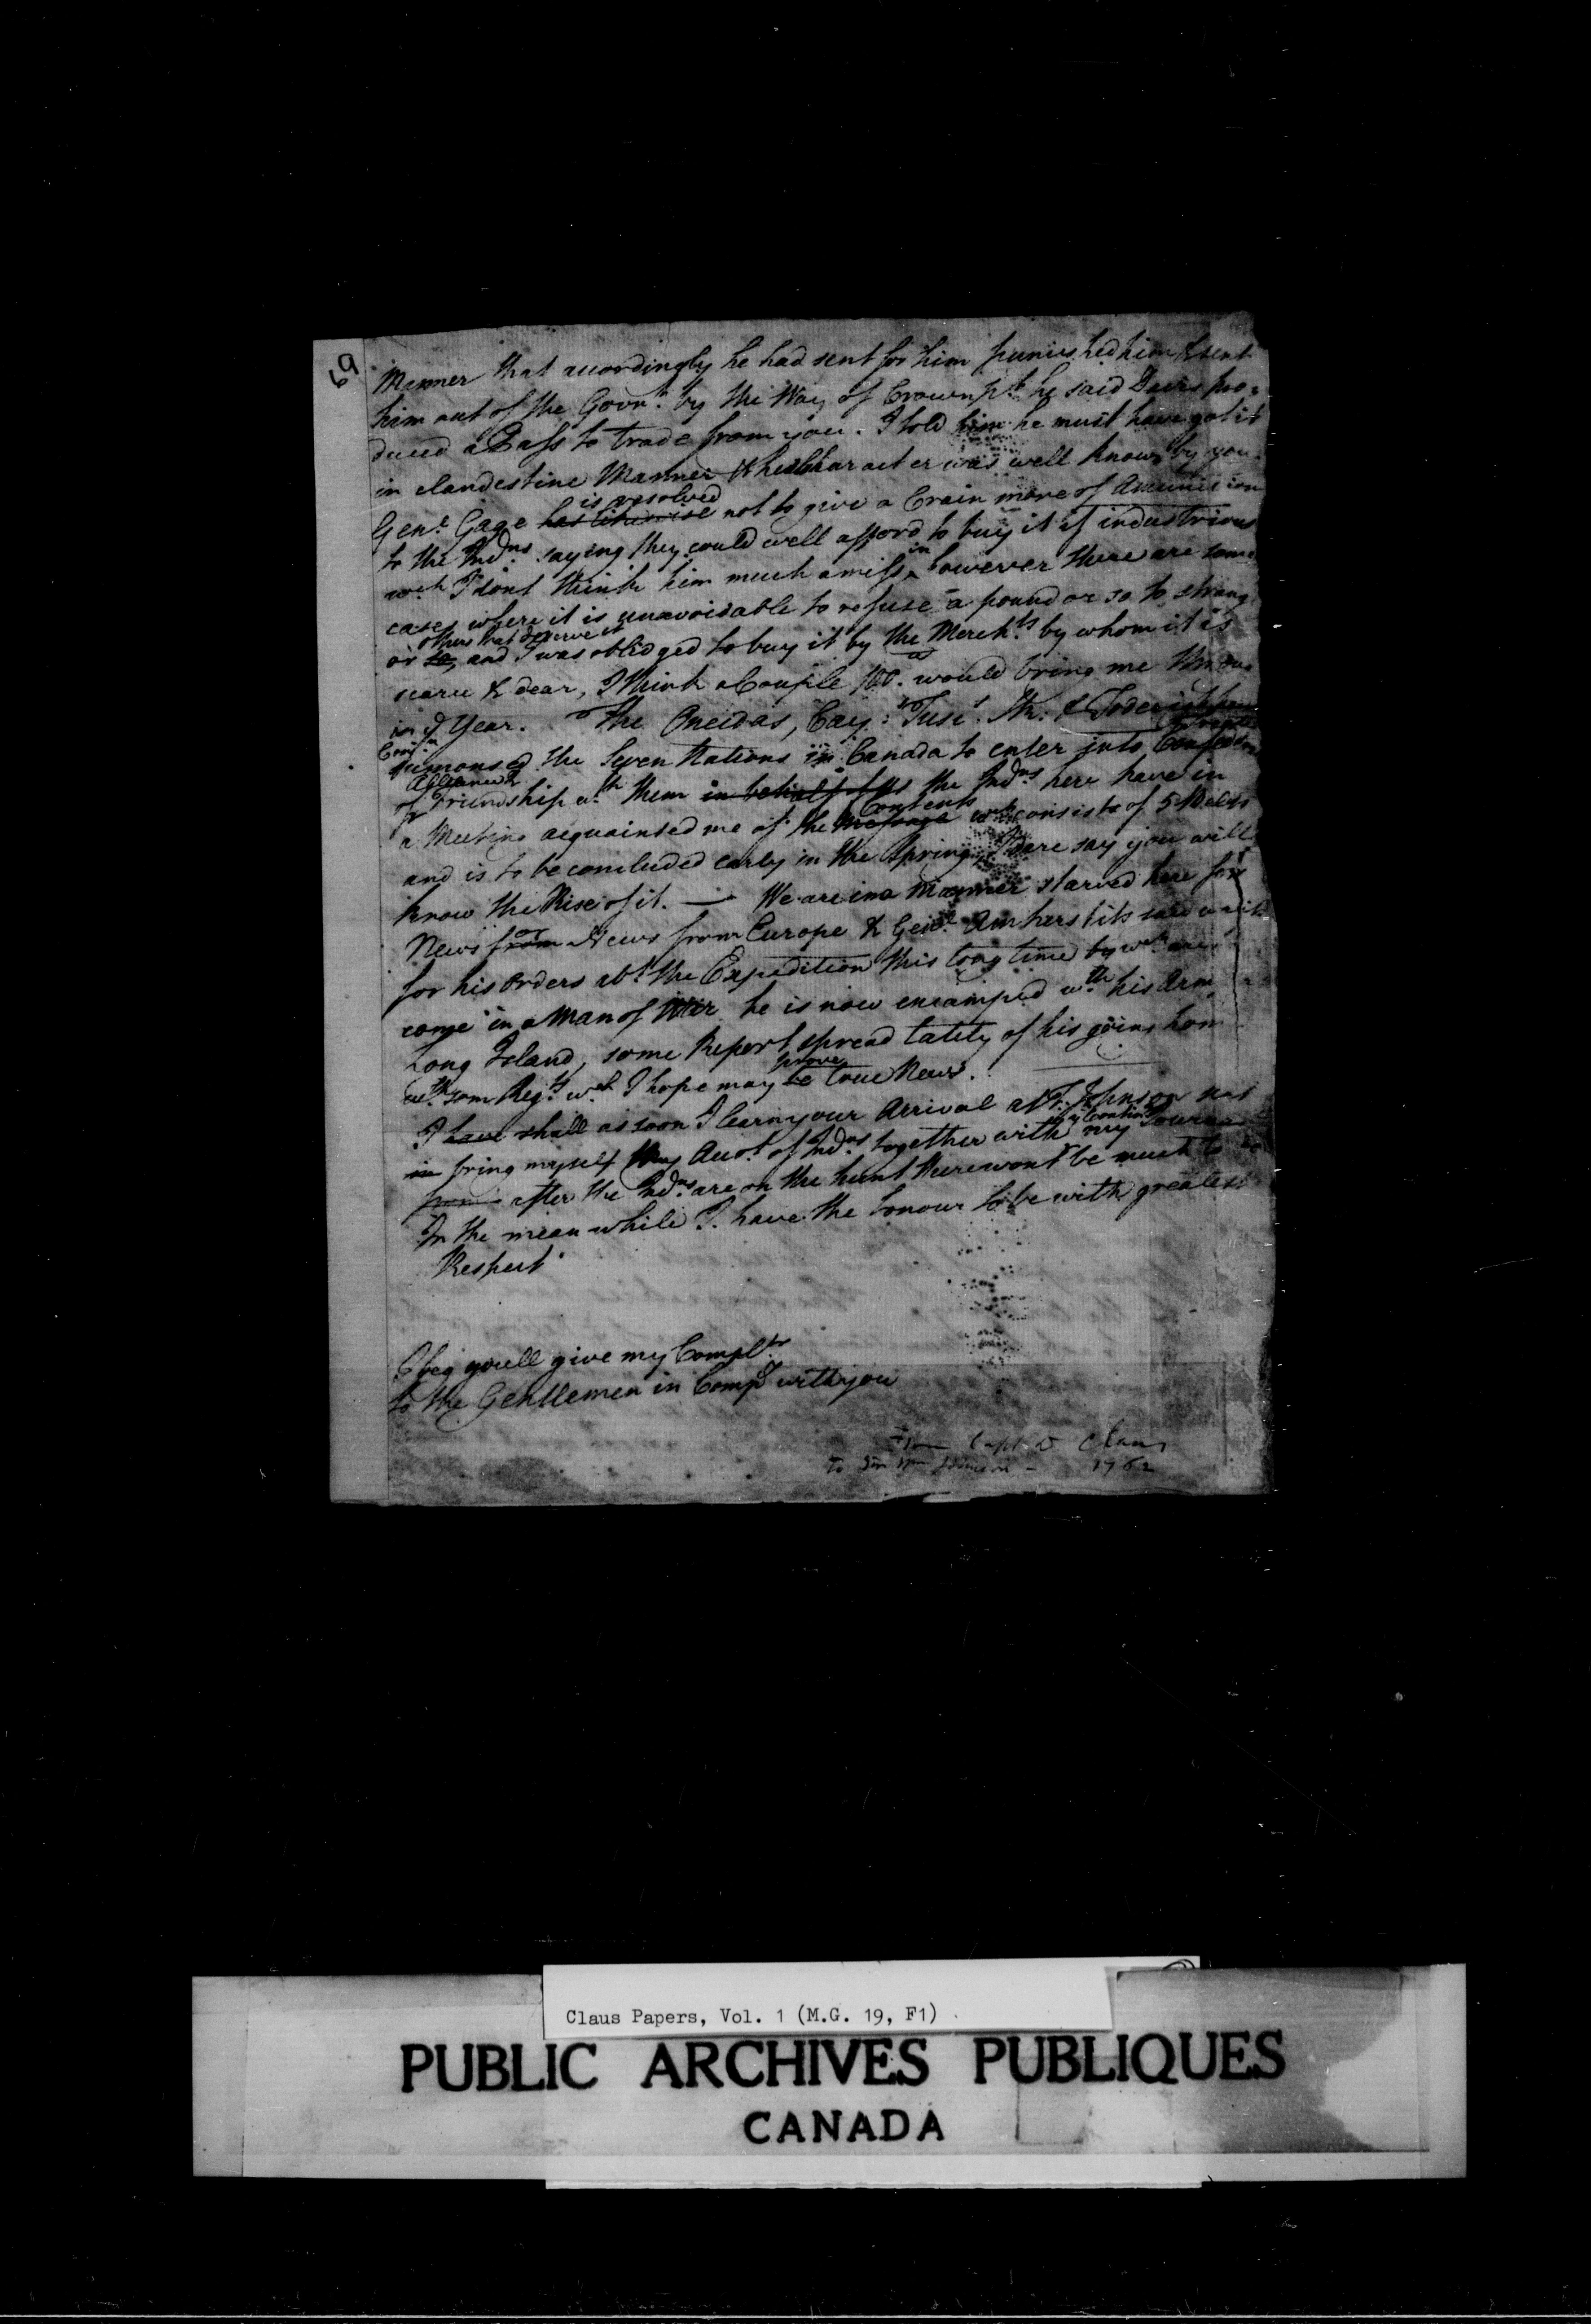 69
Manner that accordingly he had sent for him punished him & sent
him out of the Govnt. by the Way of Crownpt. he said Davis pro=
duced a Pass to trade from you. I told him he must have got it
in clandestine Manner & his Character was well known by you
is resolved
Genl. Gage has likewise not to give a Grain more of Amunition
to the Indns. saying they could well afford to buy it if industrious
in
wch I dont think him much amiss, however there are some
cases where it is unavoidable to refuse a pound or so to strang
others that deserve it
or so, and I was oblidged to buy it by the Mercht.s by whom it is
scarce & dear, I think a Couple 100. would bring me thro
in ye Year. The Oneidas, Cay: Tusc.
summonsed the Seven Nations in Canada to enter into
Alliance &
of Friendship wth. them in behalf of the Indns. here have in
Contents
a Meeting acquainted me of the Message wch consists of 5 Belts
and is to be concluded early in the Spring, I dare say you will
know the Rise of it. — We are in a Manner starved here for
or
News from News from Europe & Genl. Amherst
for his Orders abt. the Expedition this long time by wch
come in a Man of War he is now encamped wth. his Arm
Long Island, some Report spread lately of his going hom
prove
wth. som Regts. wch. I hope may be true News.
I have shall as soon I learn your Arrival at Ft. Johnson
in bring myself Accot. of Indns. together with my Journal
after the Indns. are on the hunt there wont be much to
In the mean while I have the honour to be with greatest
Respect
I beg youll give my Complts
to the Gentlemen in Compy with you
From Capt. D Claus
To Sir Wm Johnson - 1762
Claus Papers, Vol. 1 (M.G. 19, F1)
PUBLIC ARCHIVES PUBLIQUES
CANADA